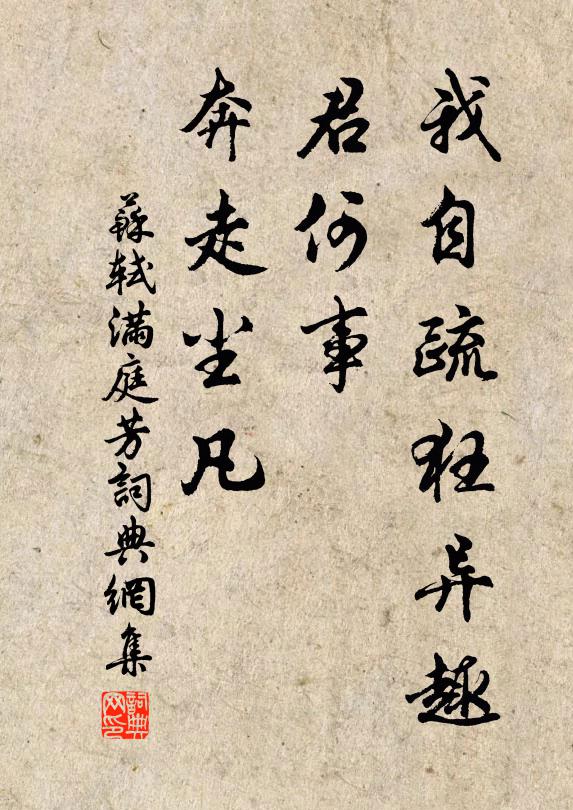 我自疏狂异趣
君何事
奔走尘凡
蘇軾滿庭芳詞典網集
詞典网印